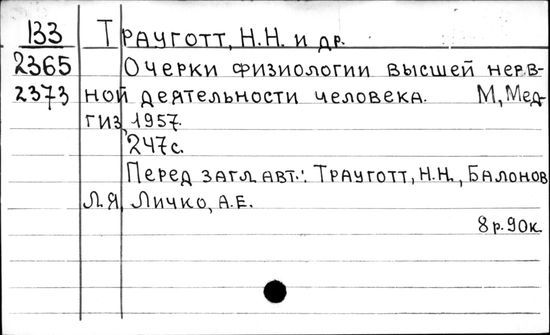 133 Трауготт, Н.Н. и др.
2365 Очерки физиологии высшей нерв-
2373 ной деятельности человека. М, Мед-
гиз, 1957.
247с.
Перед загл. авт.: Трауготт, Н.Н., Балонов
Л.Я, Личко, А.Е.
8р.90к.